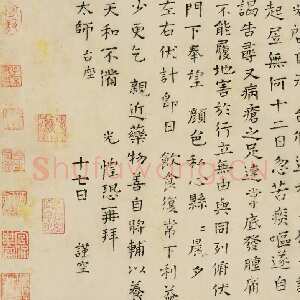 起居無何十二日忽苦痰嘔遂自
謁告尋又病瘡之足並掌底發腫痛
不能履地害於行立無由與同列俯伏
門下奉望 顏色私懸〻晨夕
左右伏計即日 飲食復常下利益
少更乞 親近藥物善自將輔以養
天和不備 光惶恐再拜
太師 台座
十七日 謹空